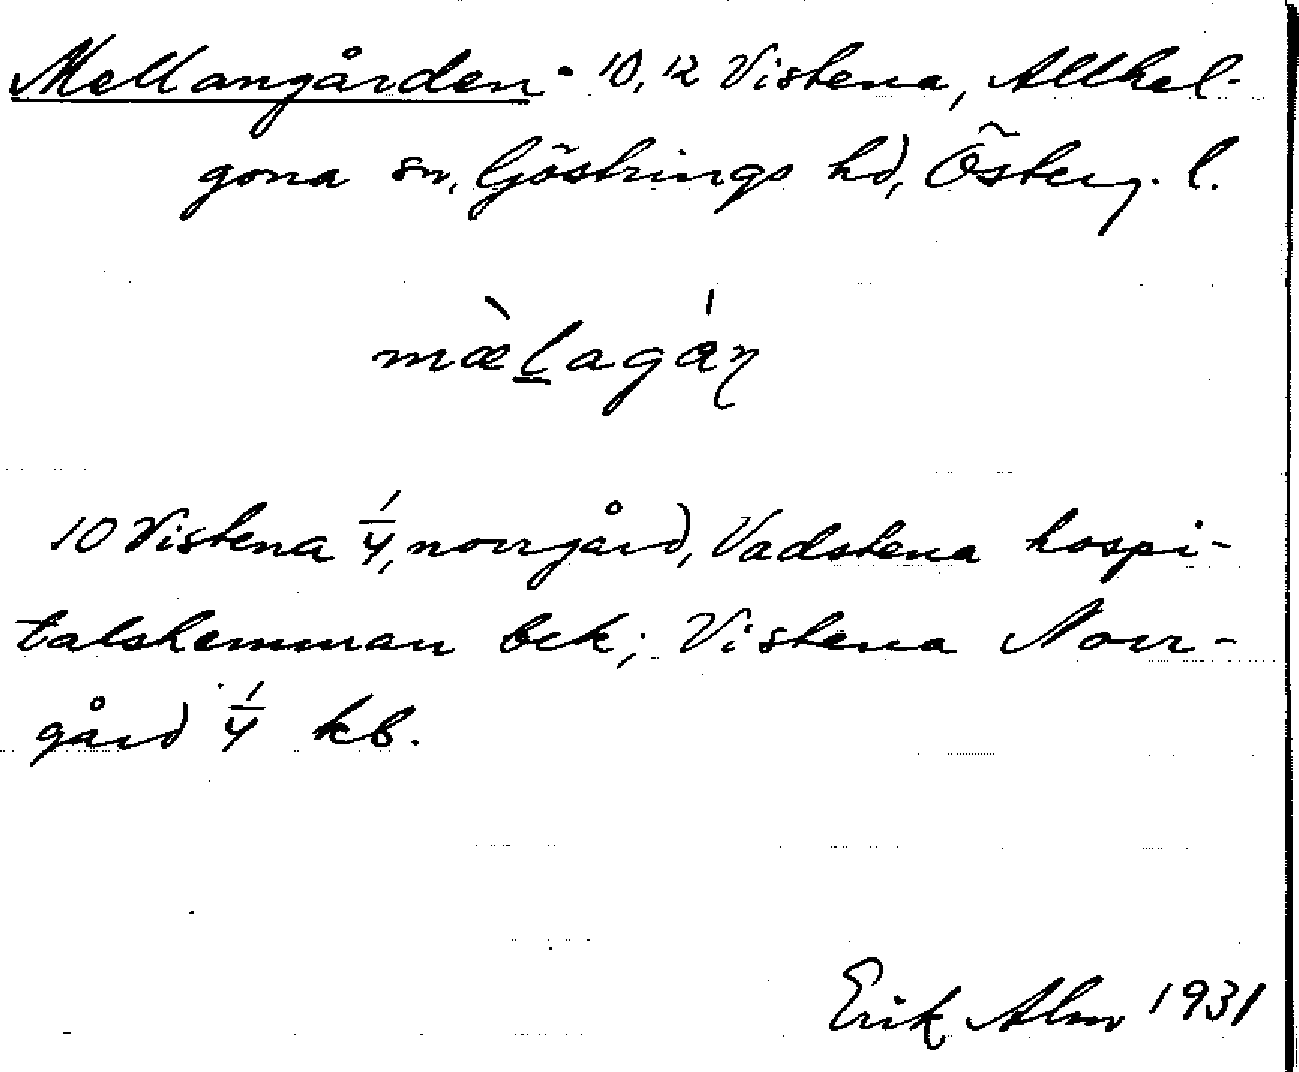 Mellangården - 10, 12 Vistena, Allhel-
gona sn, Göstrings hd, Österg. l.
mæ̀l̲agáɳ
10 Vistena 1/4, norrgård, Vadstena hospi-
talshemman bek; Vistena Norr-
gård 1/4 kb.
Erik Alm 1931